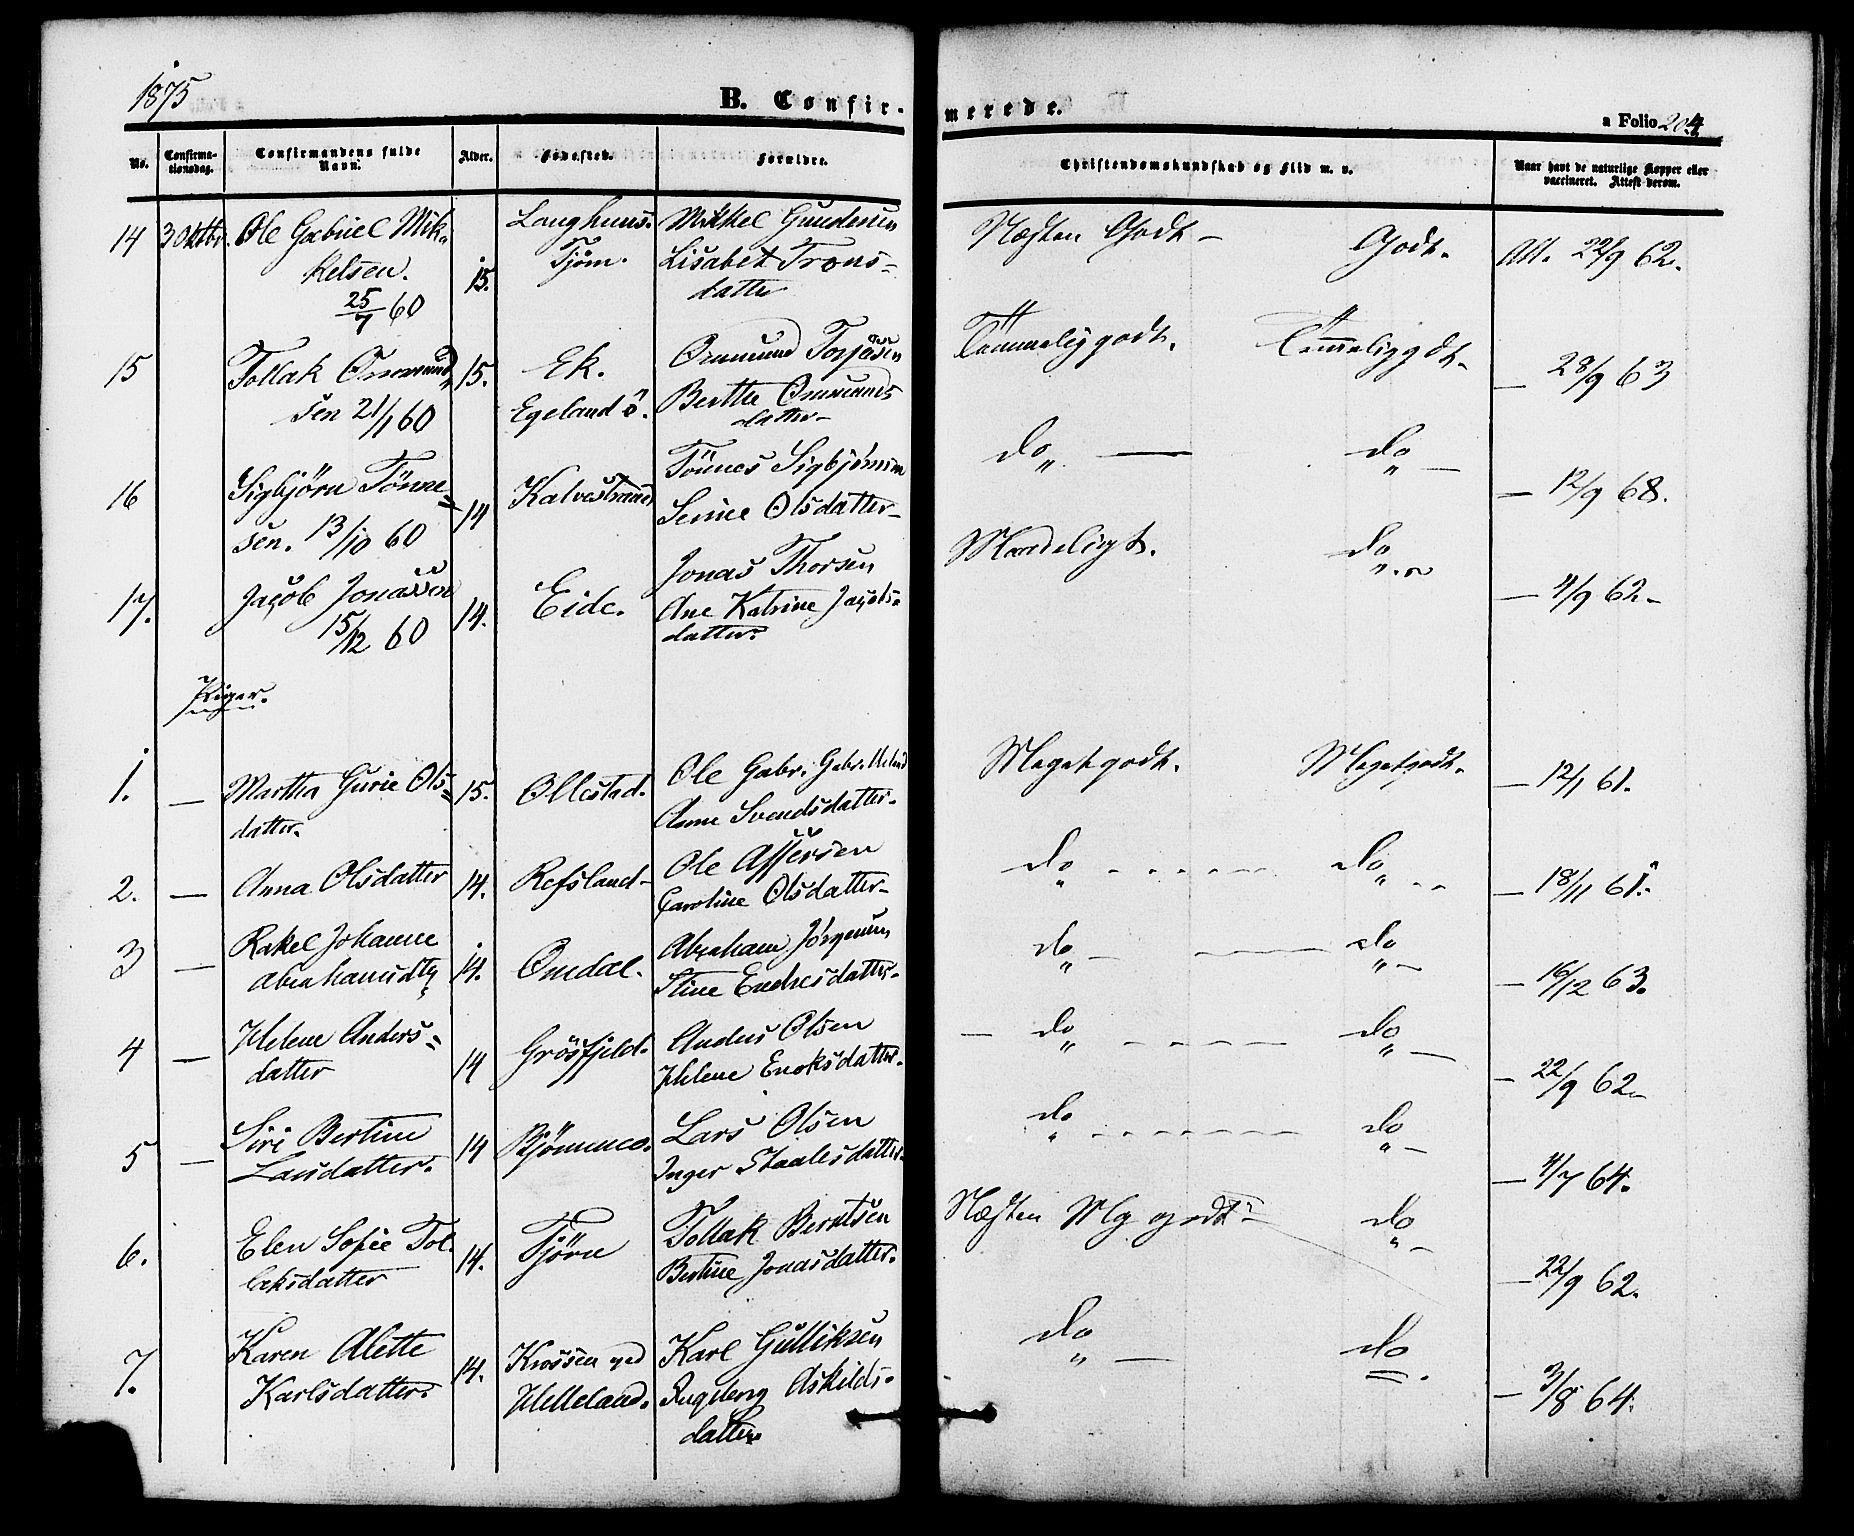 1875
B. Confir-
merede.
a Folio 204
No.
Confirma-
tionsdag.
Confirmandens fulde
Navn.
Alder.
Fødested.
Forældre.
Christendomskundskab og Flid m. v.
Naar havt de naturlige Kopper eller
vaccineret. Attest derom.
14 3 Oktbr. Ole Gabriel Mik-
kelsen.
25/7 60
15.
Tjørn.
Mikkel Gundersen
Lisabet Trons-
datter
Næsten Godt - Godt. Att. 22/9 62.
15 Tollak Ommund-
sen 21/1 60
15. Ek.
Egeland s.
Ommund Torjesen
Berthe Ommunds
datter-
Temmelig godt. Temmelig gdt. - 28/9 63
16 Sigbjörn Tönne-
sen. 13/10 60
14
Tönnes Sigbjörnsen
Serine Olsdatter-
do do - 12/9 68.
17. Jacob Jonassen
15/12 60
14. Eide.
Jonas Thorsen
Ane Katrine Jacobs-
datter.
Maadeligt. do - 4/9 62-
Piger.
1. - Martha Gurie Ols-
datter.
15. Ollestad.
Ole Gabr. Gabr.
Anne Svendsdatter.
Meget godt. Meget godt. - 12/1 61.
2. - Anna Olsdatter 14. Refsland-
Ole Assersen
Caroline Olsdatter-
do do - 18/11 61.
3 - Rakel Johanne
Abrahamsdtr
14. Omdal.
Abraham Jörgensen
Stine Endresdatter.
do do - 16/12 63.
4 - Helene Anders-
datter
14 Grösfjeld.
Anders Olsen
Helene Enoksdatter.
do do - 22/9 62-
5 - Siri Bertine
Larsdatter.
14 Bjönnmo.
Lars Olsen
Inger Staalesdatter.
do do - 4/7 64.
6. Elen Sofie Tol-
laksdatter
14. Tjörn
Tollak Berntsen
Bertine Jonasdatter.
Næsten Mg godt - do - 22/9 62.
7. Karen Alette
Karlsdatter.
14. Krossen ved
Helleland.
Karl Gulliksen
Ingeborg Askilds-
datter.
do do - 3/8 64.